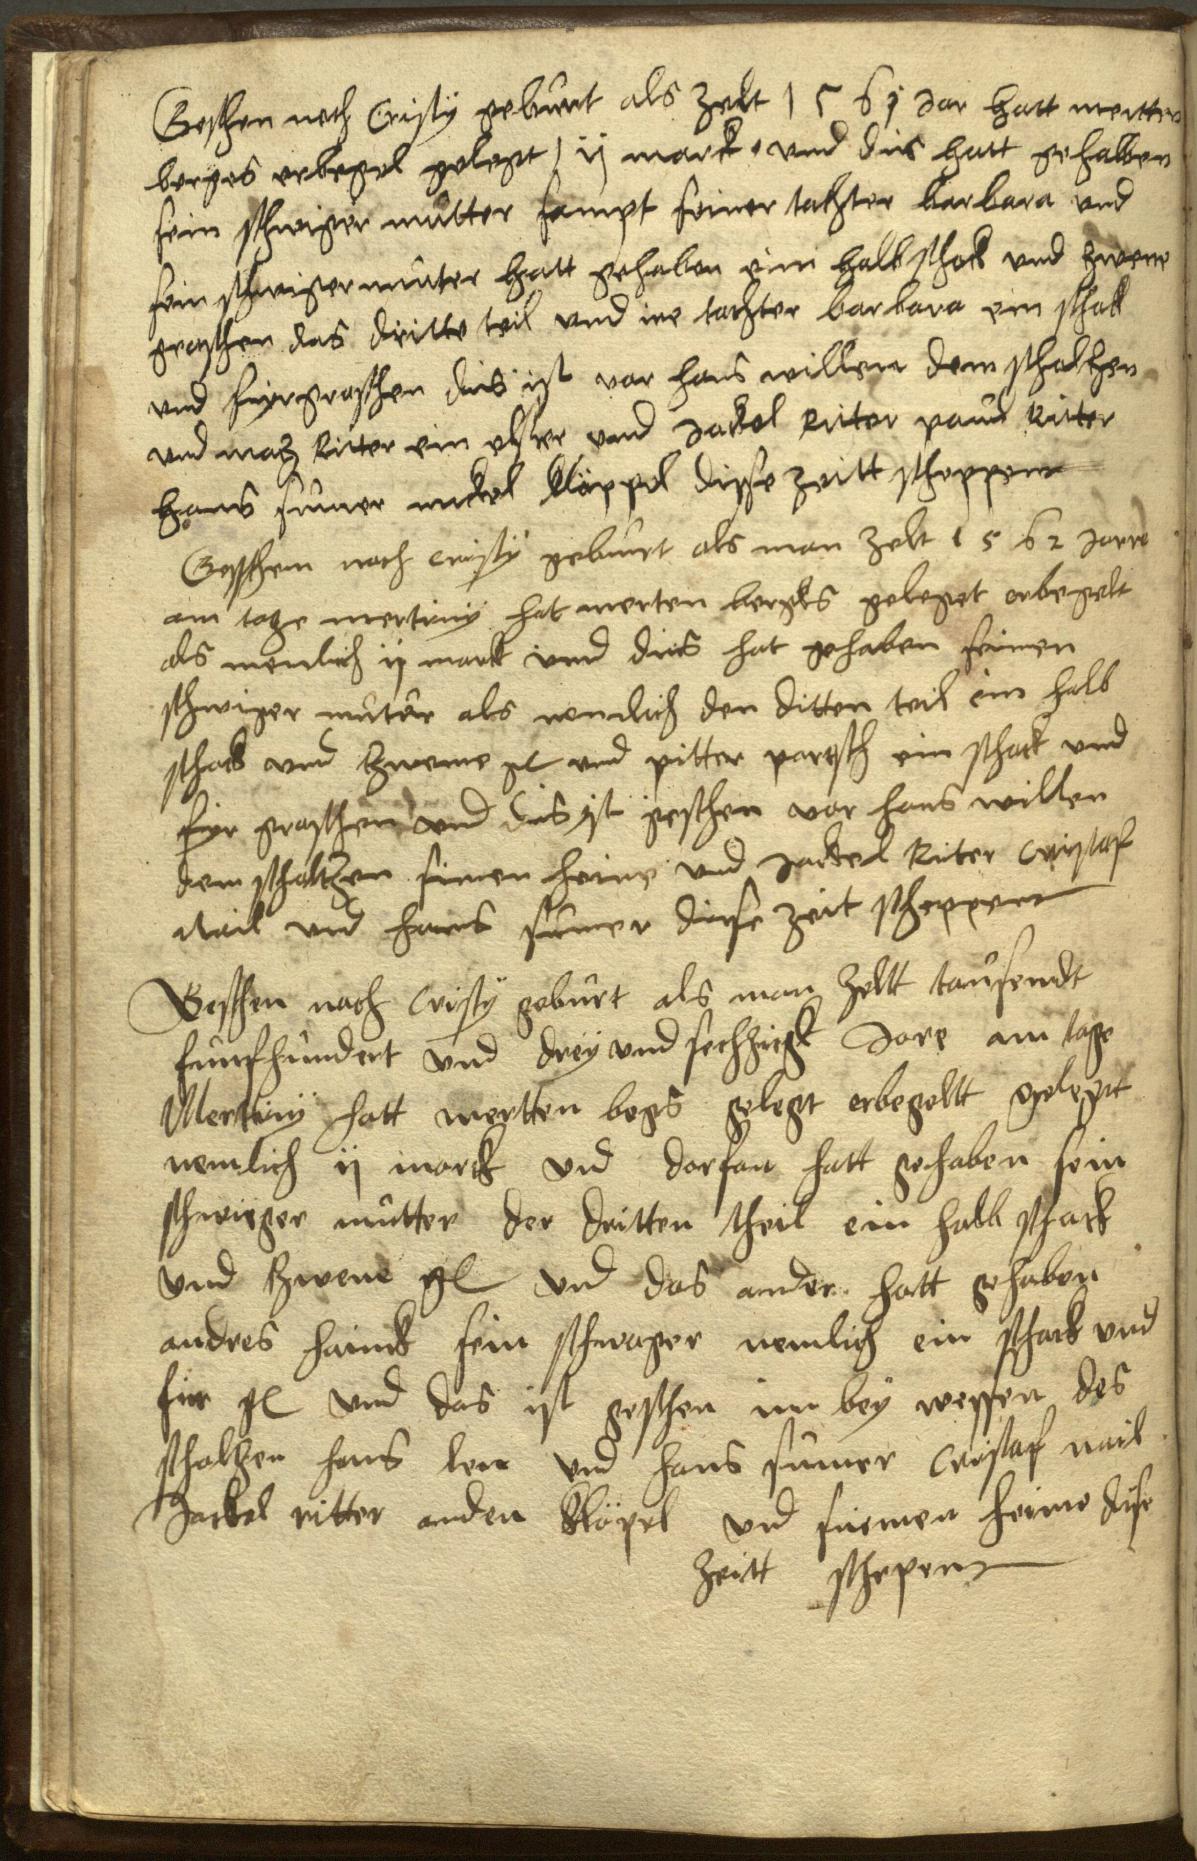 Geschen nach Cristÿ gebuurt als zelt 1561 Jar hatt mertten
berges erbegel gelegt ij mark vnd dis hatt gehalben
sein schwiger mutter sampt seiner tachter barbara vnd
sein schwigermutter hatt gehaben ein halb schock vnd zwene
graschen das dritte teil vnd ire tachter barbara ein schock
vnd fyrgraschen dis ist var hans willen dem schaltzen
vnd matz Ritter ein elster vnd Jackel Ritter Ritter
hans sumer nickel klöppel disse zeitt scheppenn
Gesschem nach cristÿ geburt als man zelt 1562 Jarre
am tage mertiniÿ hat merten bergks geleget erbegelt
als nemlich ij mark vnd dis hat gehaben seinen
schwiger muter als nemlich den ditten teil ein halb
schock vnd tzwene gl vnd pitter partsch ein schock vnd
fyr graschen vnd dis ist geschen var hans willen
dem schaltzen simen heine vnd Jackel Riter Cristaf
Nail vnd hans sumer disse zeit scheppenn
Geschen nach Cristÿ geburt als man zeltt tausendt
funfhundert vnd dreÿ vnd sechzigk Jore am tage
Mertiniÿ hatt mertten begs gelegt erbegeltt gelegt
nemlich ij marck vnd dorfan hatt gehaben sein
schwieger mutter der dritten theil ein halb schock
vnd tzwene gl vnd das ander hatt gehaben
andres hainck sein schwager nemlich ein schock vnd
fir gl vnd das ist geschen im beÿ wessen des
scholtzen hans len vnd hans sumer Cristaf nail
Jackel ritter anders Klöpel vnd siemen heine dise
zeitt schepenn